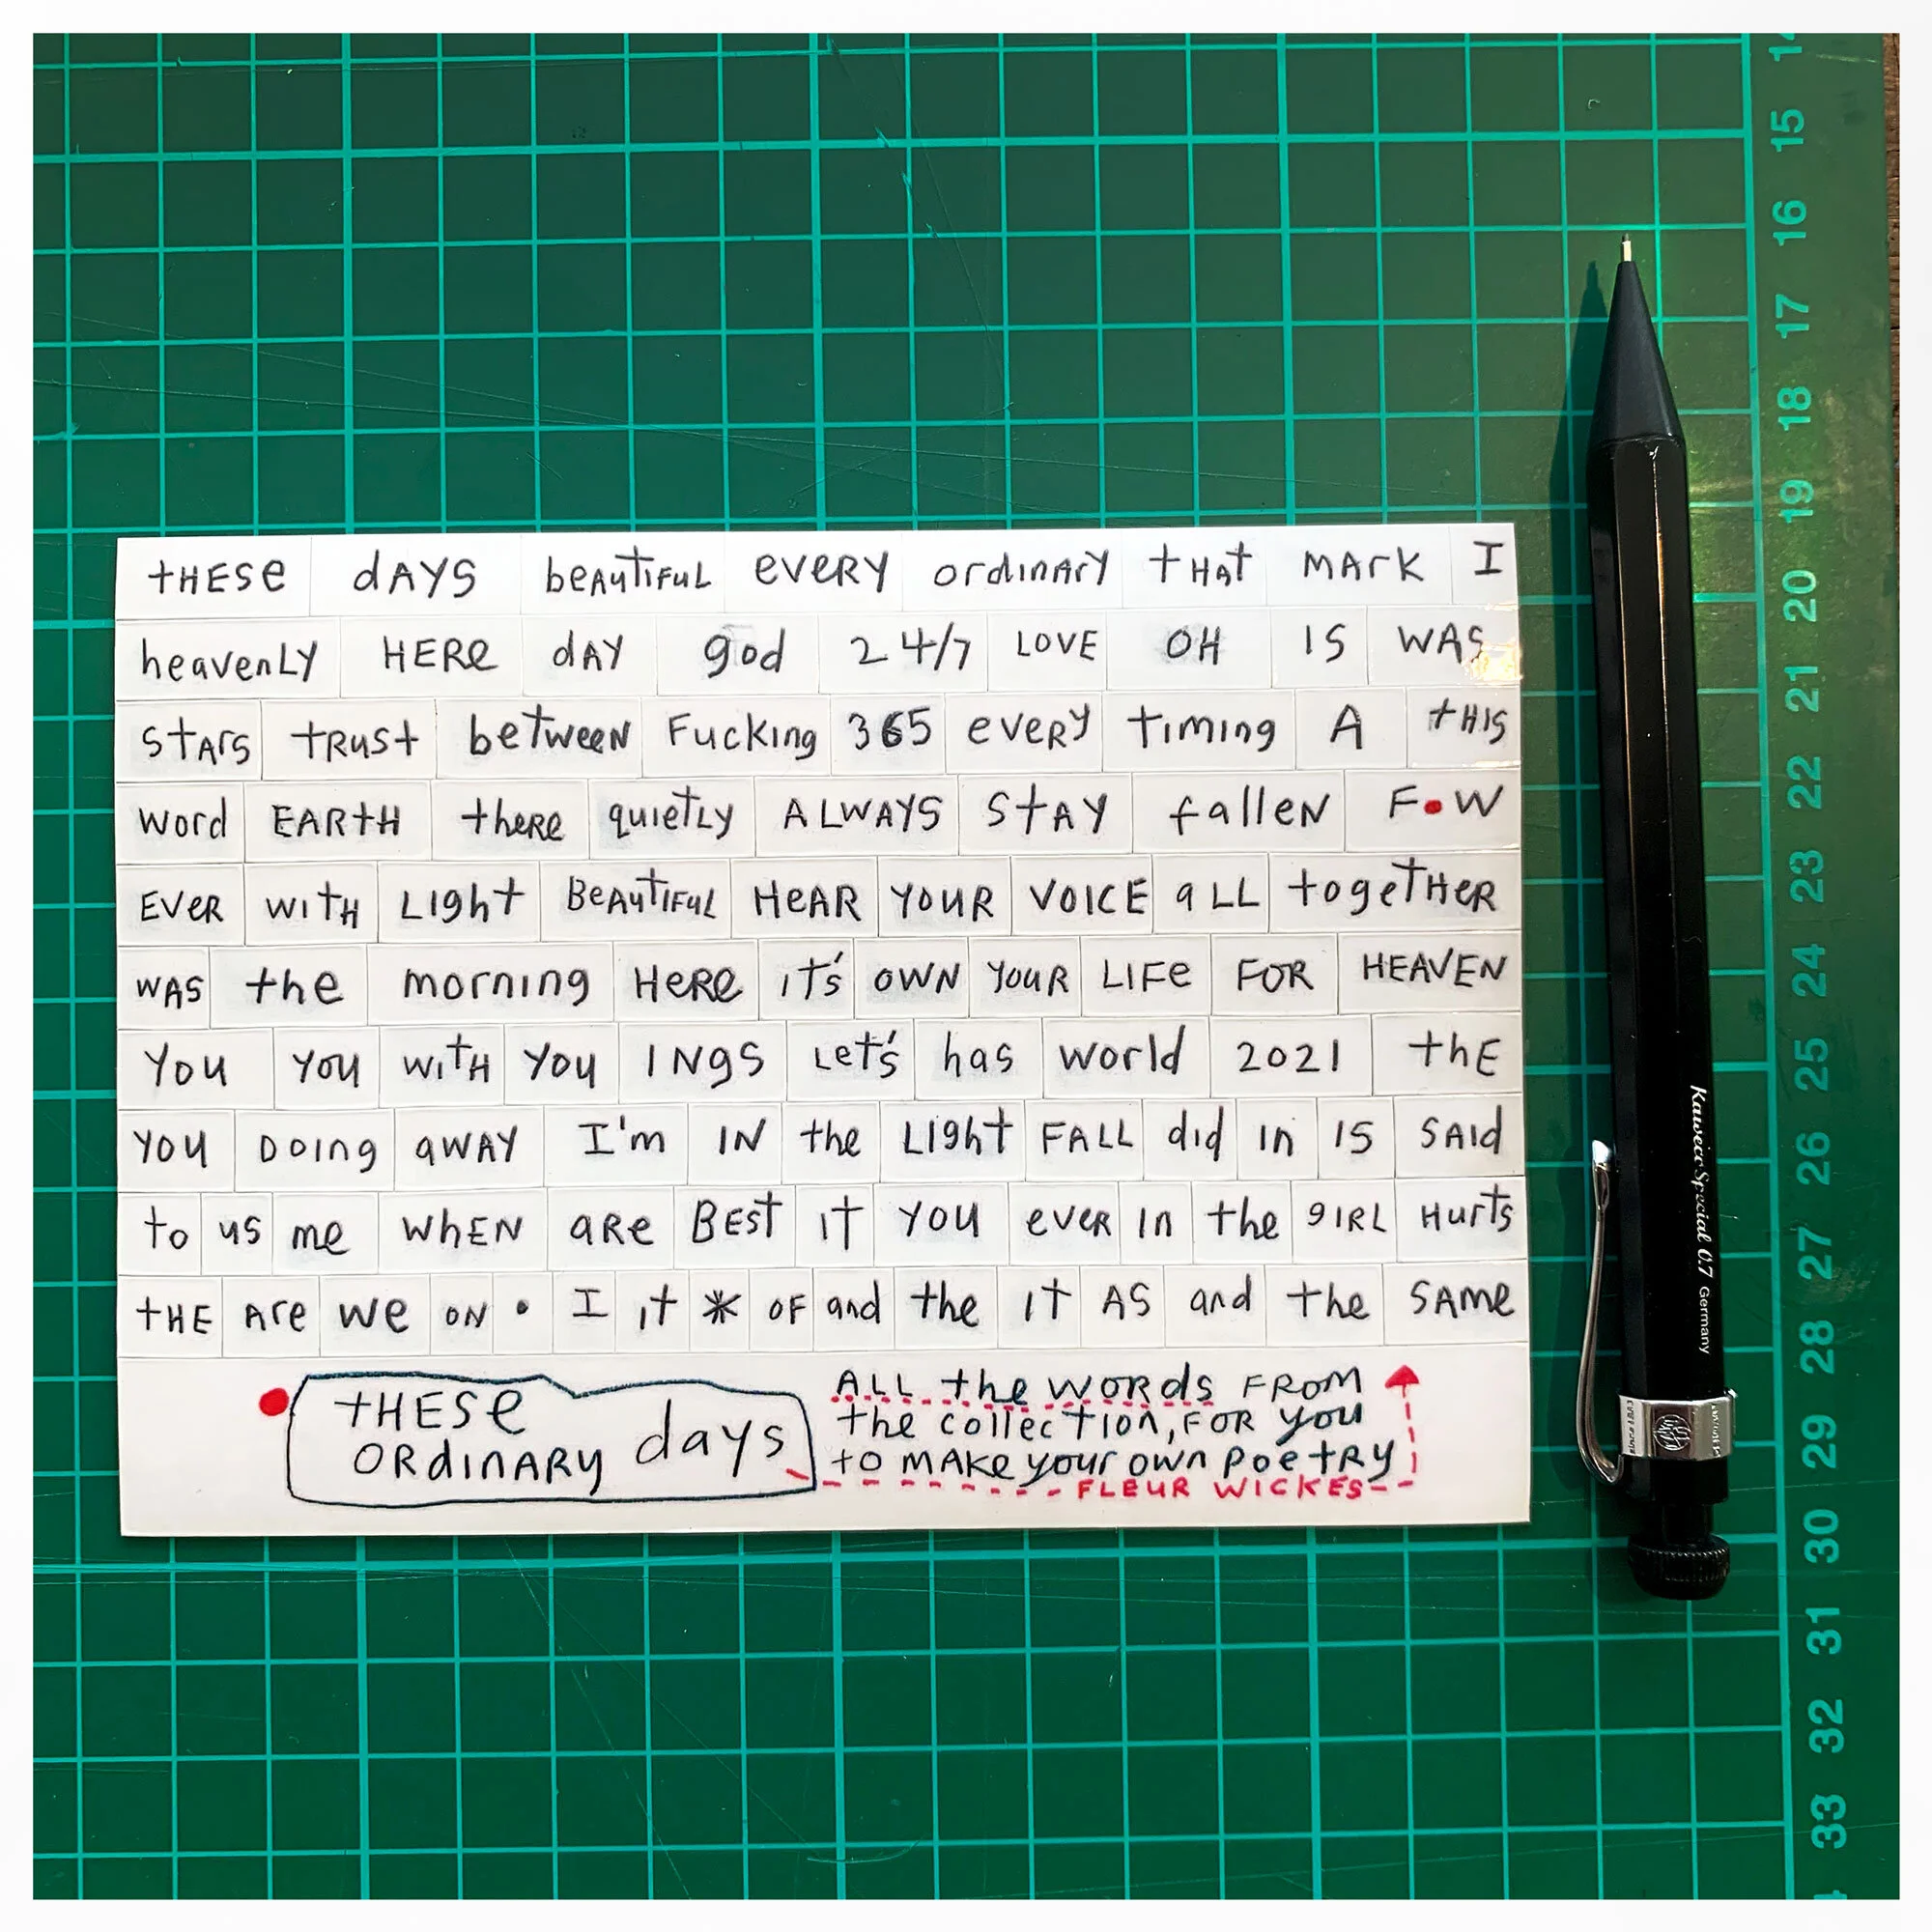 tHESe dAYS beAutIFuL eVERY ordinAry tHAt mArk I
heavenLY HERe dAY god 24/7 LOVE OH IS WAS
stArs tRUSt between Fucking 365 eveRy timing A tHIS
word EARtH theRe quietLy ALWAYS StAY falleN F•W
EVeR witH LIght BeAutIFuL HeAR YOUR VOICE aLL togetHeR
WAS the morning HeRe it's OWN YouR LIFe FOR HEAVEN
You you witH you INgs Let's has world 2021 thE
you Doing aWAY I'm IN the LIght FALL did in IS SAId
to us me WhEN aRe BESt It YOU eveR In the gIRL Hurts
tHE Are we ON • I it * OF and the It AS and the SAMe
tHESe
ORdINARy days
ALL the WORds FROM
the collection, FOR you
to MAKe your own Poetry
FLEUR WICKES
Kaweco Special 0.7 Germany
14
15
16
17
18
19
20
21
22
23
24
25
26
27
28
29
30
31
32
33